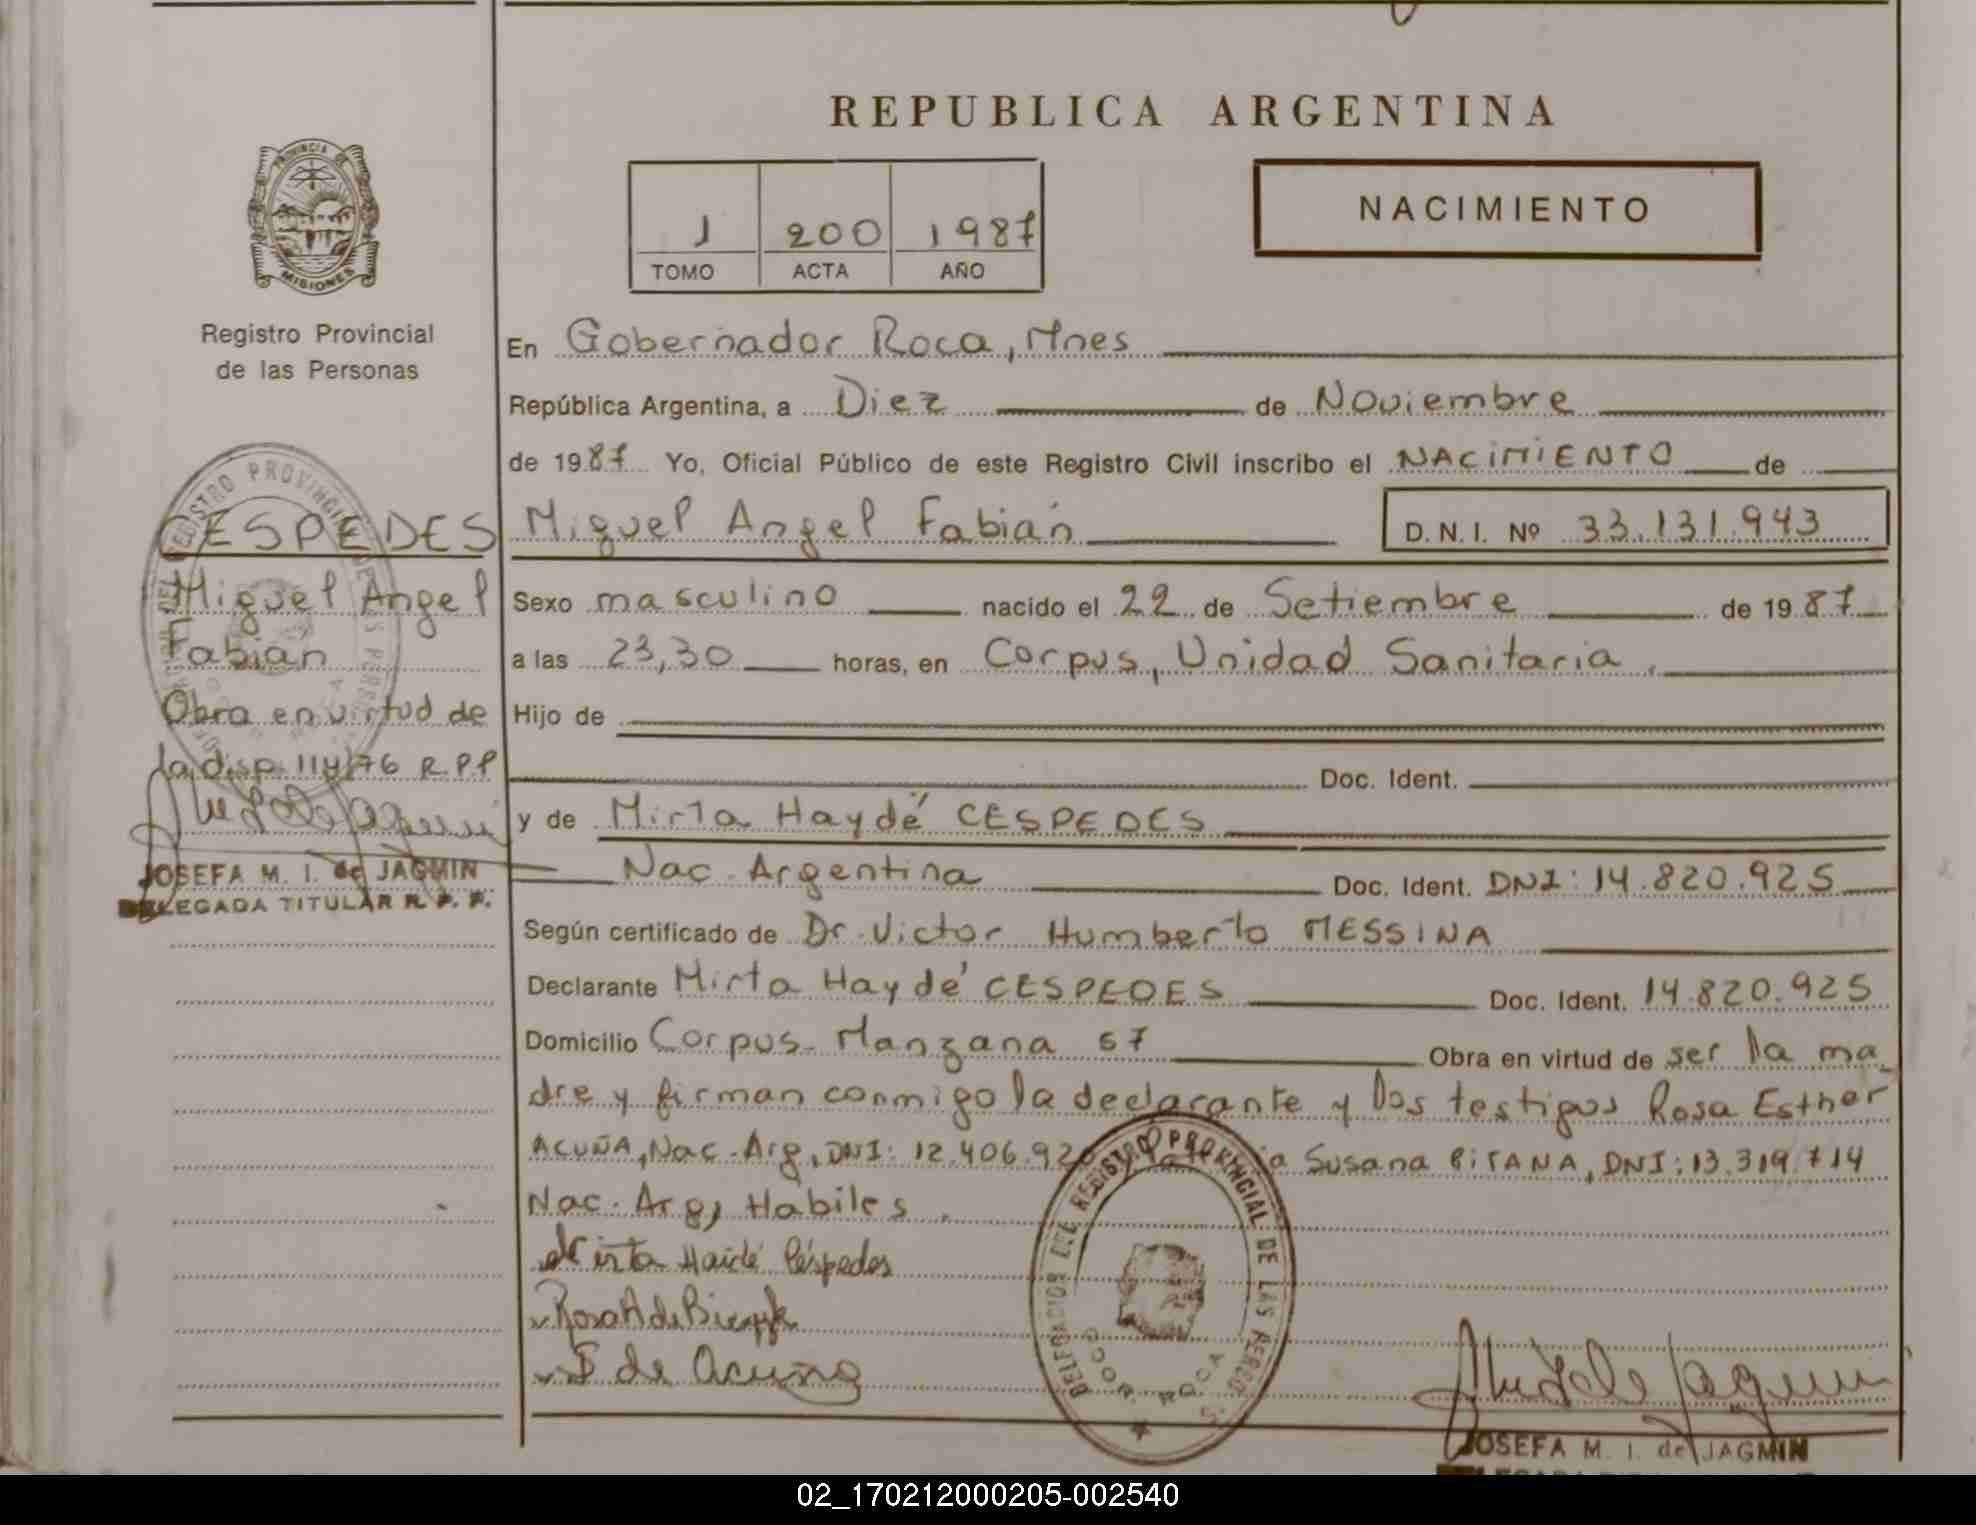 REPUBLICA ARGENTINA
PROVINCIA DE
MISIONES
Registro Provincial
de las Personas
1 200 1987
TOMO ACTA AÑO
NACIMIENTO
En Gobernador Roca, Mnes
República Argentina, a Diez de Noviembre
de 1987 Yo, Oficial Público de este Registro Civil inscribo el NACIMIENTO de
CESPEDES
Miguel Angel
Fabián
Obra en virtud de
la disp. 114/76 R.P.P
JOSEFA M. I. de JAGMIN
DELEGADA TITULAR R. P. P.
Miguel Angel Fabián
D. N. I. Nº 33.131.943
Sexo masculino nacido el 22 de Setiembre de 1987
a las 23,30 horas, en Corpus, Unidad Sanitaria.
Hijo de
Doc. Ident.
y de Mirta Haydé CESPEDES
Nac. Argentina Doc. Ident. DNI: 14.820.925
Según certificado de Dr. Victor Humberto MESSINA
Declarante Mirta Haydé CESPEDES Doc. Ident. 14.820.925
Domicilio Corpus- Manzana 57 Obra en virtud de ser la ma_
dre y firman conmigo la declarante y los testigos Rosa Esther
ACUÑA, Nac. Arg, DNI: 12.406.92 Susana PITANA, DNI: 13.319.714
Nac. Arg, Habiles.
Mirta Haidé Céspedes
Rosa A de
S de Acuña
DELEGACION DEL REGISTRO PROVINCIAL DE LAS PERSONAS
GOB. ROCA
JOSEFA M. I. de JAGMIN
02_170212000205-002540